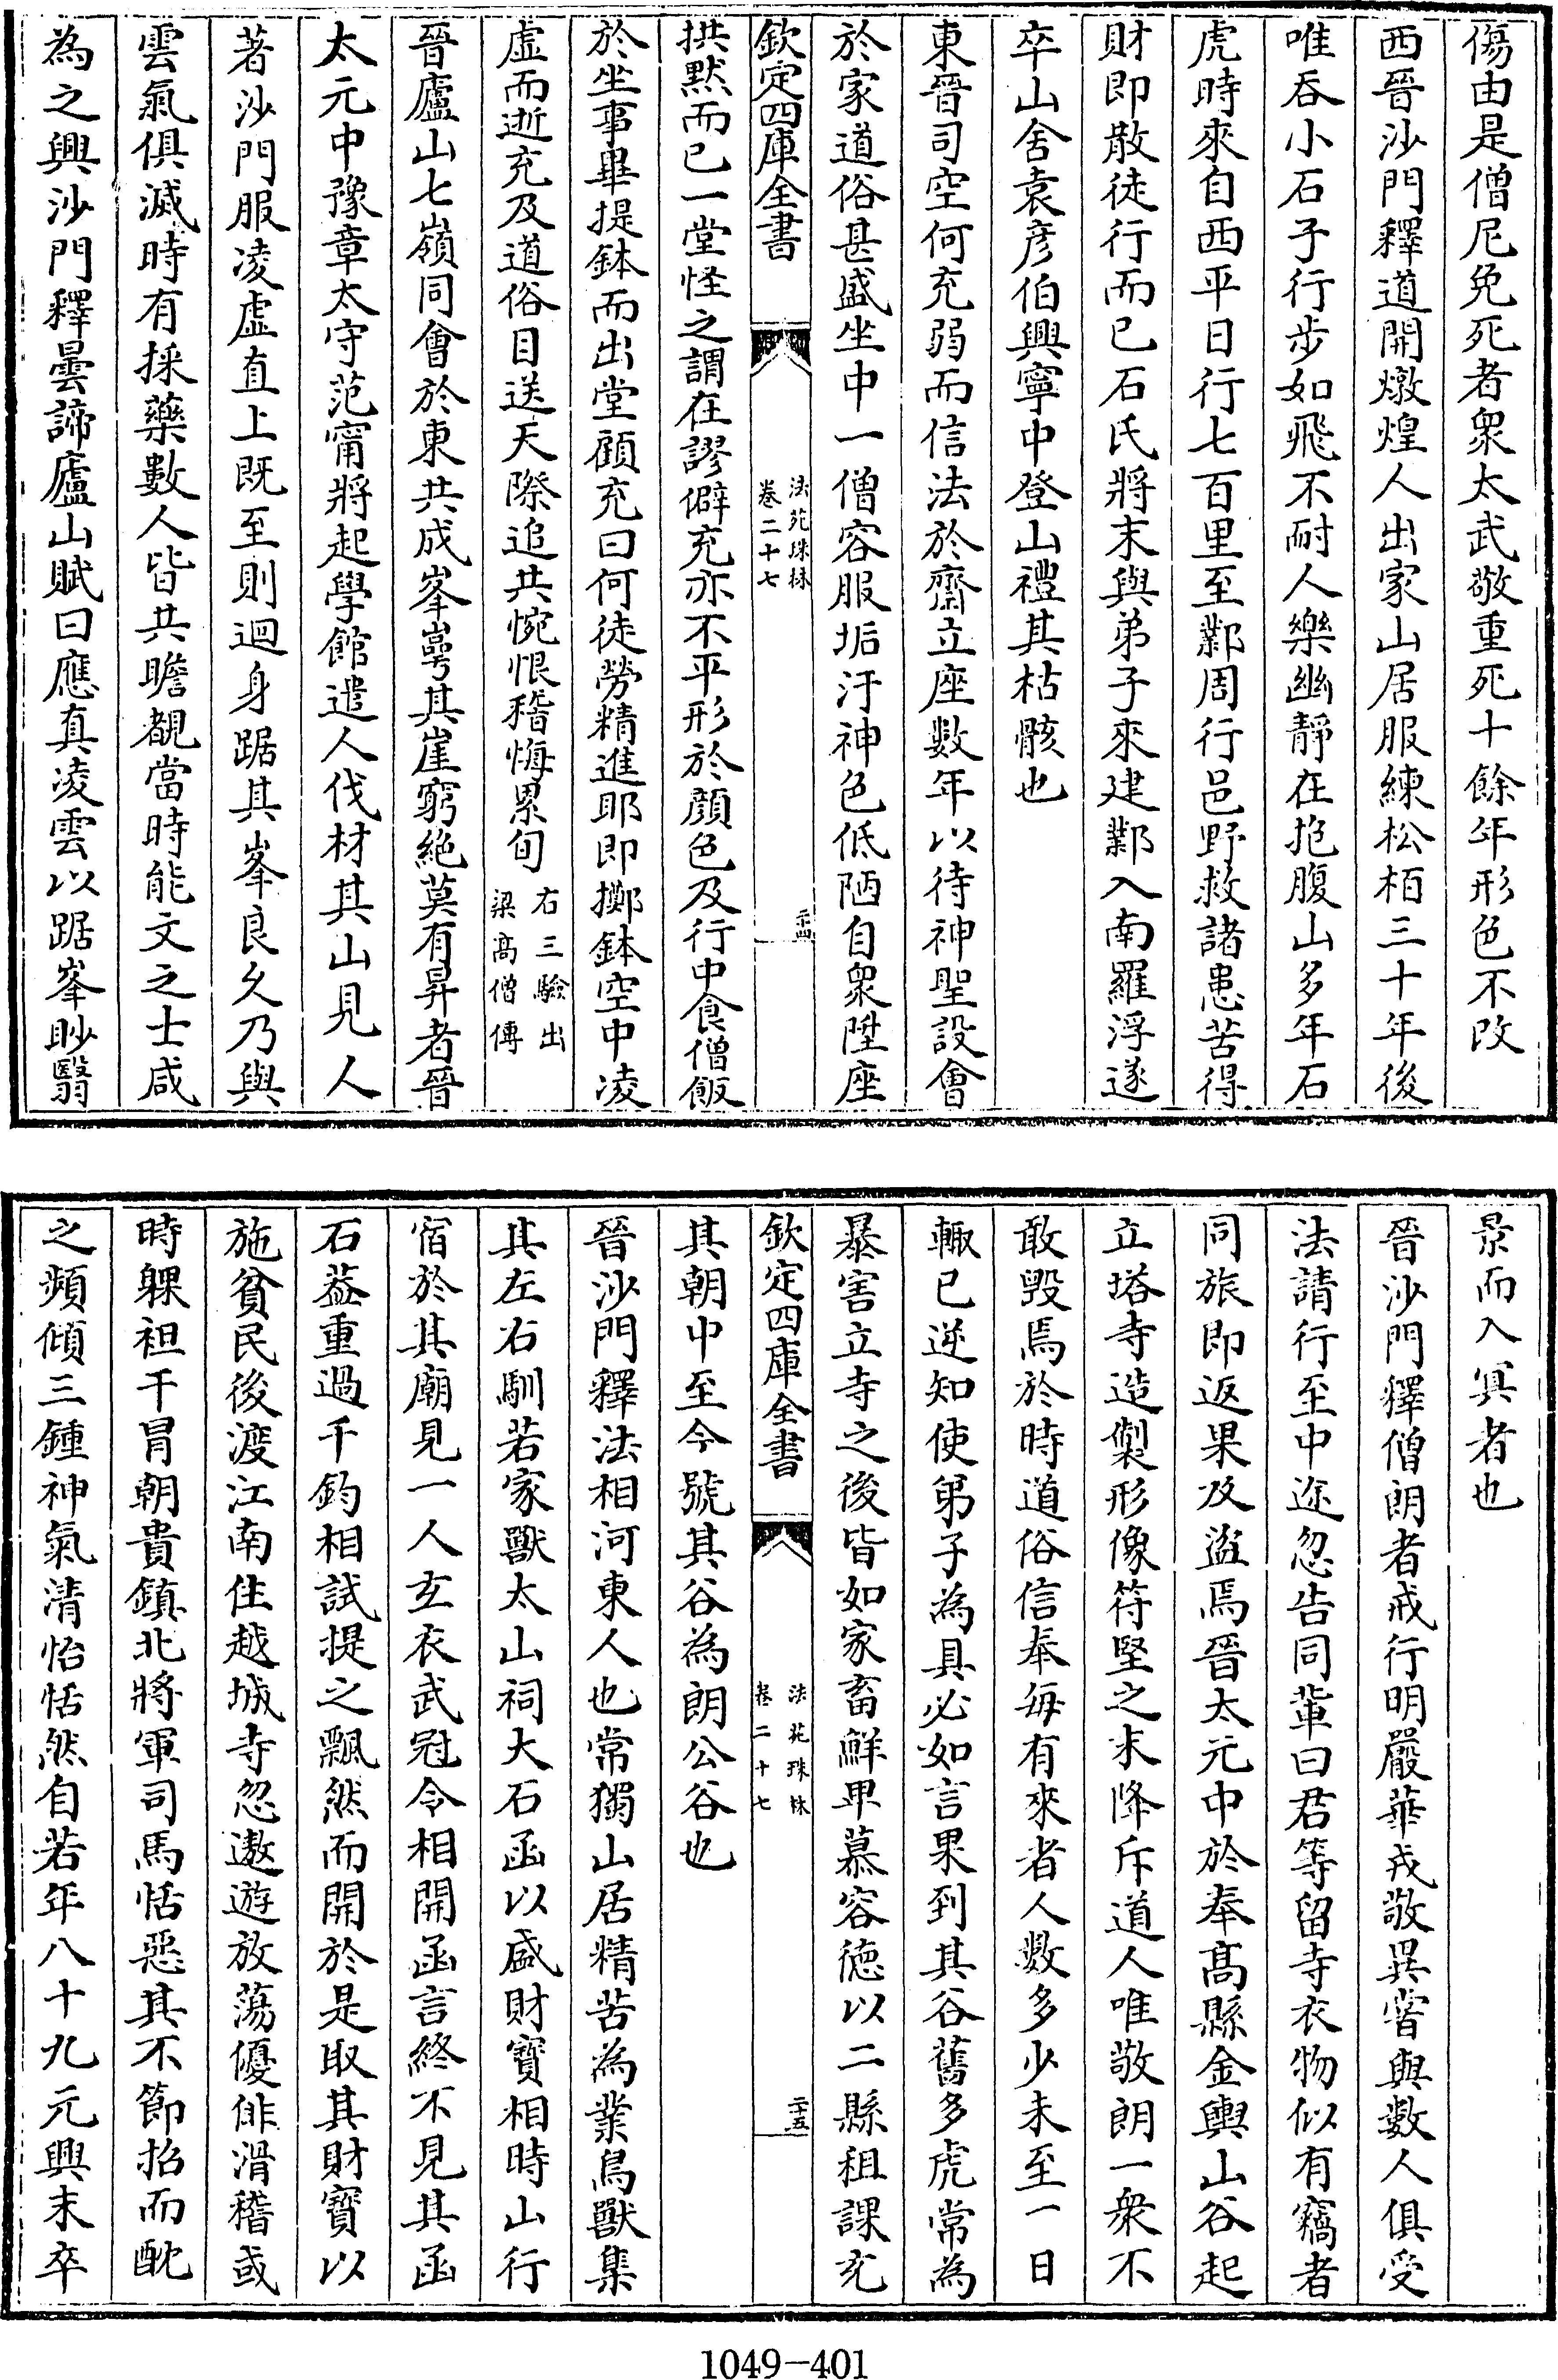 傷由是僧尼免死者衆太武敬重死十餘年形色不改
西晉沙門釋道開燉煌人出家山居服練松栢三十年後
唯吞小石子行步如飛不耐人樂幽靜在抱腹山多年石
虎時來自西平日行七百里至鄴周行邑野救諸患苦得
財即散徒行而已石氏將末與弟子來建鄴入南羅浮遂
卒山舍袁彦伯興寧中登山禮其枯骸也
東晉司空何充弱而信法於齋立座數年以待神聖設會
於家道俗甚盛坐中一僧容服垢汙神色低陋自衆陞座
欽定四庫全書
法苑珠林
卷二十七
二十四
拱默而已一堂怪之謂在謬僻充亦不平形於顔色及行中食僧飯
於坐事畢提鉢而出堂顧充曰何徒勞精進耶即擲鉢空中凌
虛而逝充及道俗目送天際追共惋恨稽悔累旬
右三驗出
梁高僧傳
晉廬山七嶺同會於東共成峯崿其崖窮絶莫有昇者晉
太元中豫章太守范甯將起學館遣人伐材其山見人
著沙門服凌虛直上既至則迴身踞其峯良久乃與
雲氣俱滅時有採藥數人皆共瞻覩當時能文之士咸
為之興沙門釋曇諦廬山賦曰應真凌雲以踞峯眇翳
景而入冥者也
晉沙門釋僧朗者戒行明嚴華戎敬異嘗與數人俱受
法請行至中途忽告同輩曰君等留寺衣物似有竊者
同旅即返果及盜焉晉太元中於奉髙縣金輿山谷起
立塔寺造製形像符堅之末降斥道人唯敬朗一衆不
敢毁焉於時道俗信奉毎有來者人數多少未至一日
輙已逆知使弟子為具必如言果到其谷舊多虎常為
暴害立寺之後皆如家畜鮮卑慕容徳以二縣租課充
欽定四庫全書
法苑珠林
卷二十七
二十五
其朝中至今號其谷為朗公谷也
晉沙門釋法相河東人也常獨山居精苦為業鳥獸集
其左右馴若家獸太山祠大石函以盛財寳相時山行
宿於其廟見一人玄衣武冠令相開函言終不見其函
石葢重過千鈞相試提之飄然而開於是取其財寳以
施貧民後渡江南住越城寺忽遨遊放蕩優俳滑稽或
時躶袒干冒朝貴鎮北將軍司馬恬惡其不節招而酖
之頻傾三鍾神氣清怡恬然自若年八十九元興末卒
1049-401